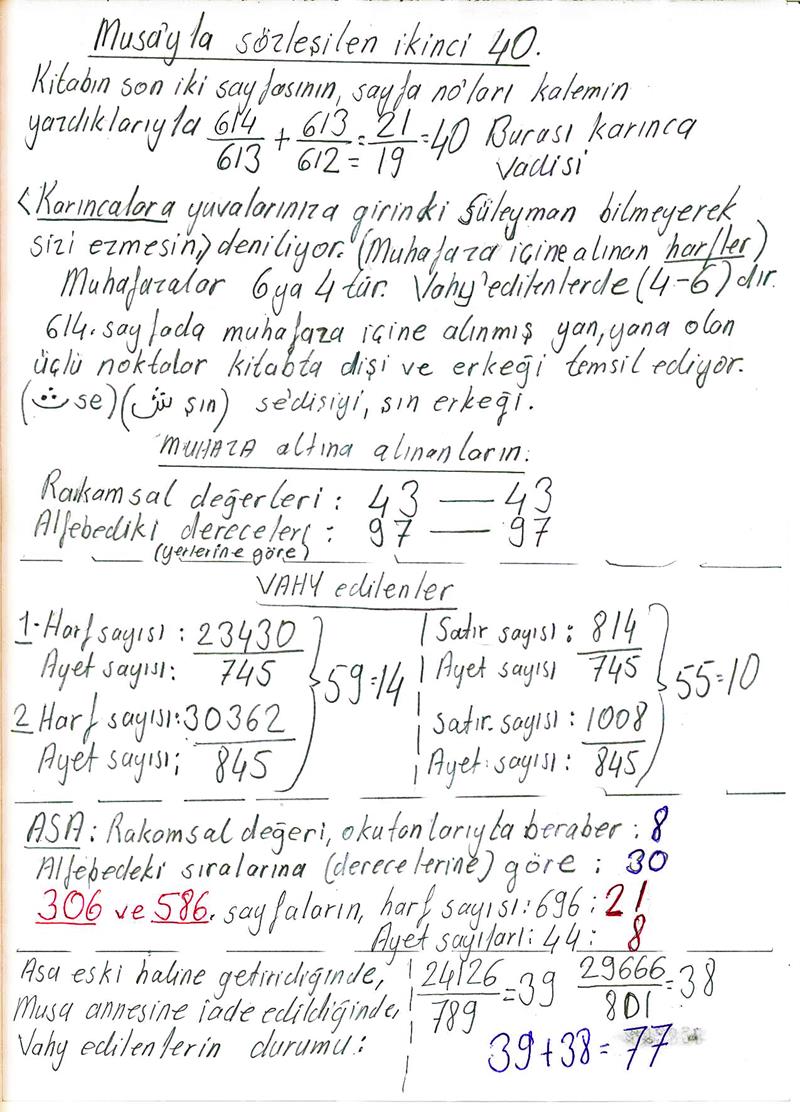 Musa'yla sözleşilen ikinci 40.
Kitabın son iki sayfasının, sayfa no'ları kalemin
yazdıklarıyla 614/613 + 613/612 = 21/19 = 40 Burası karınca
vadisi
<Karıncalara yuvalarınıza girinki Süleyman bilmeyerek
sizi ezmesin,> deniliyor. (Muhafaza içine alınan harfler)
Muhafazalar 6 ya 4 tür. Vahy'edilenlerde (4-6) dır.
614. sayfada muhafaza içine alınmış yan, yana olan
üçlü noktalar kitabta dişi ve erkeği temsil ediyor.
(ث se) (ش şın) se'dişiyi, şın erkeği.
MUHAZA altına alınanların:
Rakamsal değerleri : 43 — 43
Alfebediki dereceleri : 97 — 97
(yerlerine göre)
VAHY edilenler
1- Harf sayısı : 23430
Ayet sayısı: 745
59=14
2 Harf sayısı: 30362
Ayet sayısı; 845
Satır sayısı : 814
Ayet sayısı 745
55=10
Satır. sayısı : 1008
Ayet sayısı : 845
ASA : Rakamsal değeri, okutanlarıyla beraber : 8
Alfebedeki sıralarına (derecelerine) göre : 30
306 ve 586. sayfaların, harf sayısı: 696 : 21
Ayet sayıları: 44 : 8
Asa eski haline getiridiğinde,
Musa annesine iade edildiğinde,
Vahy edilenlerin durumu :
24126/789 = 39 29666/801 = 38
39+38=77